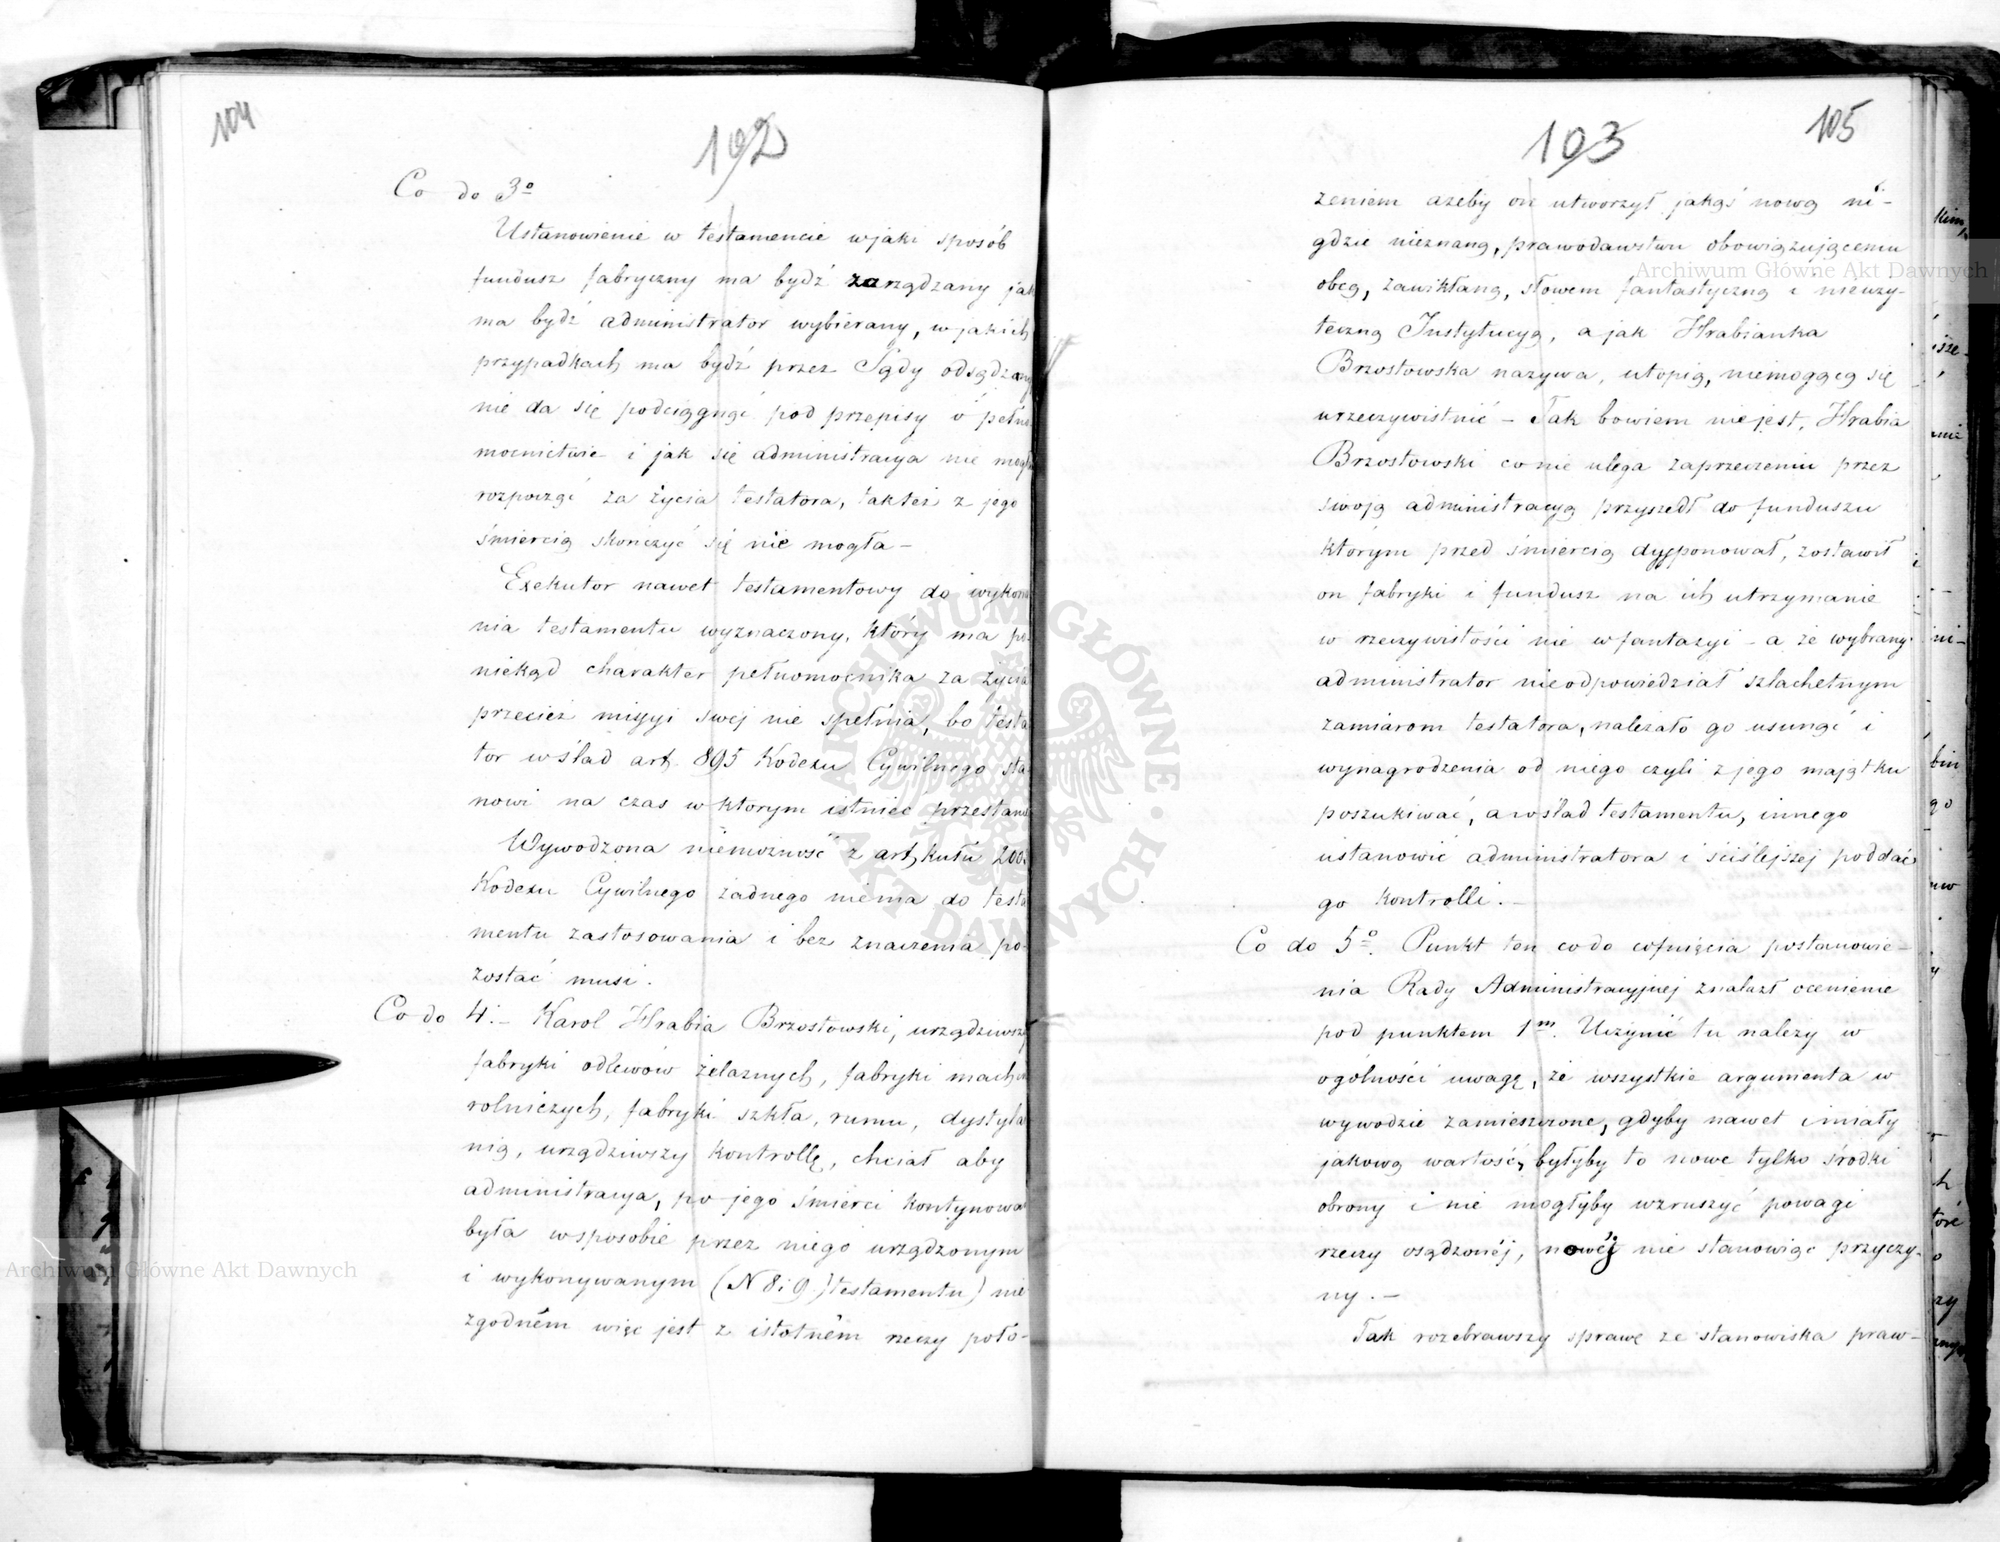 104
102
Co do 3º
Ustanowienie w testamencie wjaki sposób
fundusz fabryczny ma bydź zarządzany jak
ma bydź administrator wybierany, wjakich
przypadkach ma bydź przez Sądy odsądzany
nie da się podciągnąć pod przepisy o pełno
mocnictwie i jak się administracya nie mogła
rozpocząć za życia testatora, takteż z jego
śmiercią skonczyć się nie mogła –
Exekutor nawet testamentowy do wykona
nia testamentu wyznaczony, który ma po-
niekąd charakter pełnomocnika za życia
przecież missyi swej nie spełnia, bo testa
tor wślad art. 895 Kodexu Cywilnego sta-
nowi na czas wktorym istnieć przestanie
Wywodzona niemożność z artykułu 2003
Kodexu Cywilnego żadnego niema do testa
mentu zastosowania i bez znaczenia po-
zostać musi.
Co do 4. – Karol Hrabia Brzostowski, urządziwszy
fabryki odlewów żelaznych, fabryki machin
rolniczych, fabryki szkła, rumu, dystylar
nią, urządziwszy kontrollę, chciał aby
administracya, po jego śmierci kontynowa
była wsposobie przez niego urządzonym
i wykonywanym (N 8 i 9) testamentu) nie
zgodném więc jest z istotném rzeczy poło-
103
105
żeniem ażeby on utworzył jakąś nową ni-
gdzie nieznaną, prawodawstwu obowiązującemu
obcą, zawikłaną, słowem fantastyczną i nieuży-
teczną Instytucyą, a jak Hrabianka
Brzostowska nazywa, utopią, niemogącą się
urzeczywistnić – Tak bowiem nie jest, Hrabia
Brzostowski co nie ulega zaprzeczeniu przez
swoją administracyą przyszedł do funduszu
którym przed śmiercią dysponował, zostawił
on fabryki i fundusz na ich utrzymanie
w rzeczywistości nie wfantazyi – a że wybrany
administrator nieodpowiedział szlachetnym
zamiarom testatora, należało go usunąć i
wynagrodzenia od niego czyli z jego majątku
poszukiwać, a wślad testamentu, innego
ustanowić administratora i ściślejszej poddać
go kontrolli. –
Co do 5º. Punkt ten codo cofnięcia postanowie-
nia Rady Administracyjnej znalazł ocenienie
pod punktem 1m. Uczynić tu należy w
ogólności uwagę, że wszystkie argumenta w
wywodzie zamieszczone, gdyby nawet i miały
jakową wartość, byłyby to nowe tylko środki
obrony i nie mogłyby wzruszyć powagi
rzeczy osądzonéj, nowéj nie stanowiąc przyczy-
ny. –
Tak rozebrawszy sprawę ze stanowiska praw-
Archiwum Główne Akt Dawnych
Archiwum Główne Akt Dawnych
ARCHIWUM GŁÓWNE AKT DAWNYCH